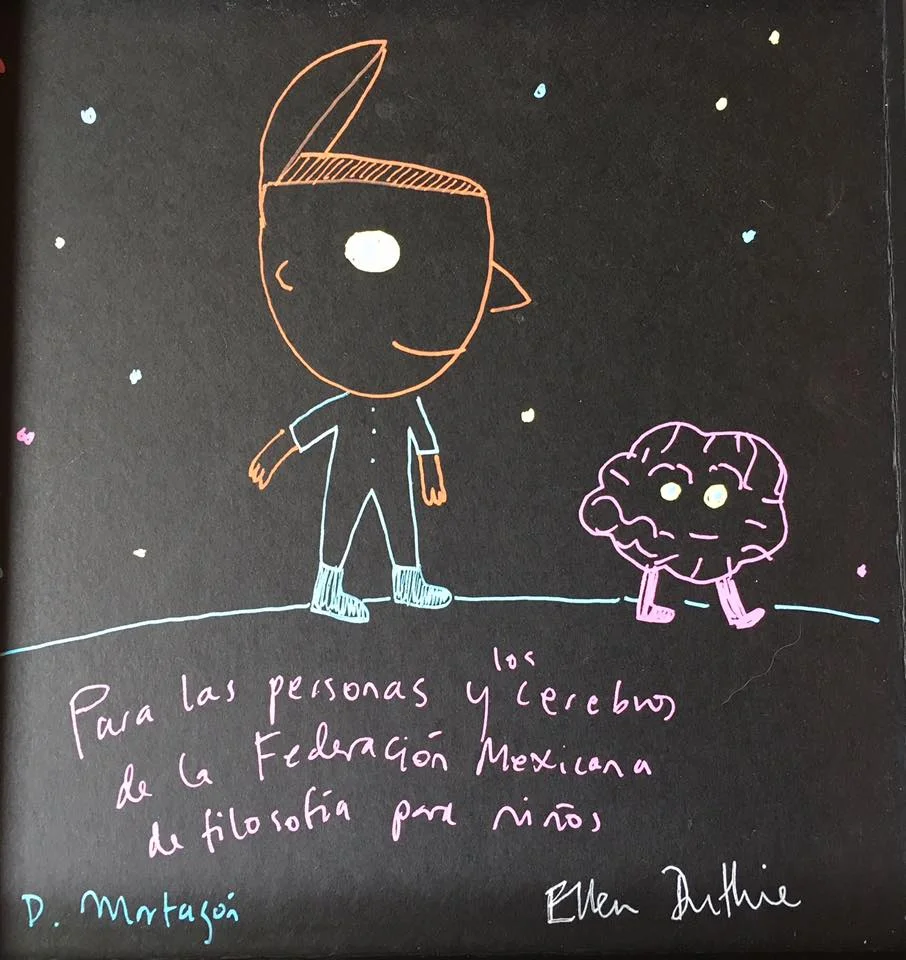 Para las personas y los cerebros
de la Federación Mexicana
de filosofía para niños
D. Martagón
Ellen Duthie